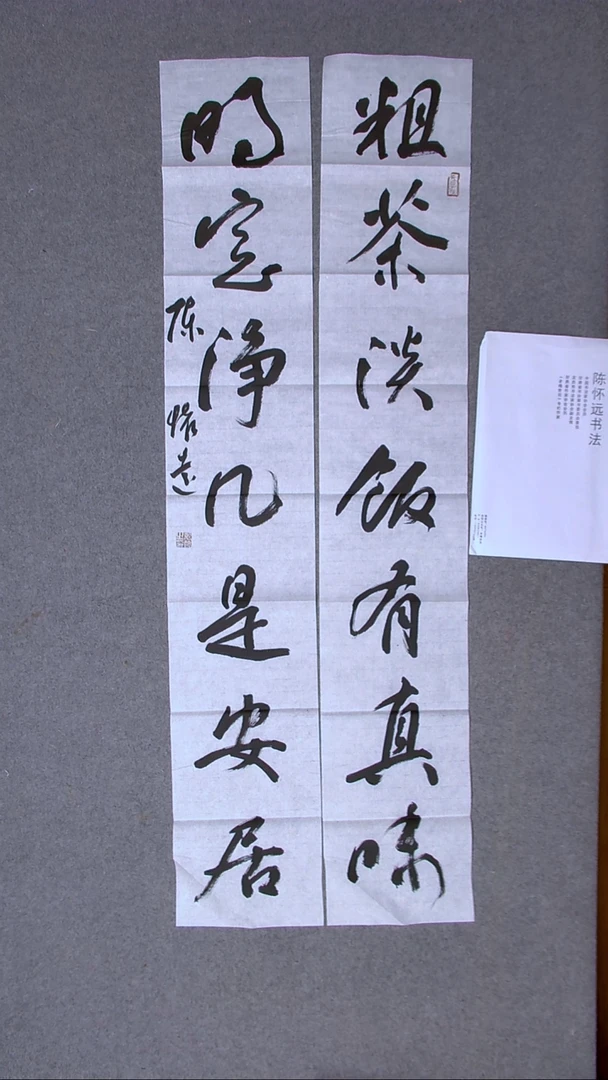 粗茶淡飯有真味
明窓浄几是安居
陈怀远
陈怀远书法